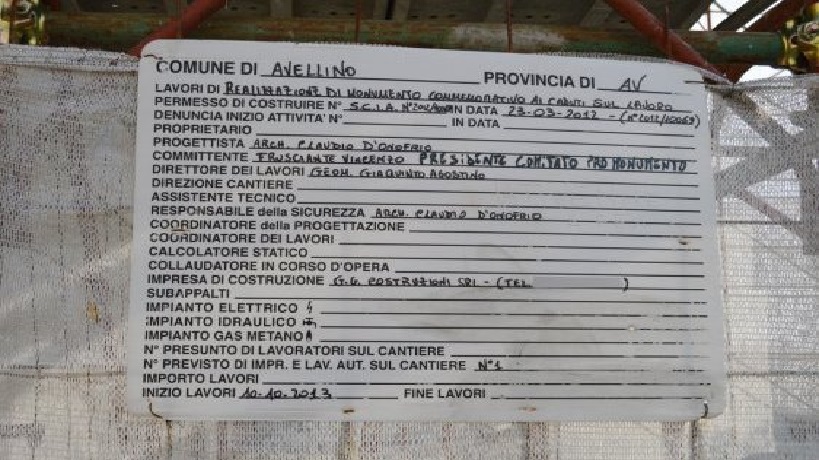 COMUNE DI AVELLINO PROVINCIA DI AV
LAVORI DI REALIZZAZIONE DI MONUMENTO COMMEMORATIVO AI CADUTI SUL LAVORO
PERMESSO DI COSTRUIRE N° S.C.I.A. N° IN DATA 23-03-2012 - (N° 2012/10069)
DENUNCIA INIZIO ATTIVITA' N° IN DATA
PROPRIETARIO
PROGETTISTA ARCH. CLAUDIO D'ONOFRIO
COMMITTENTE FRUSCIANTE VINCENZO PRESIDENTE COMITATO PRO MONUMENTO
DIRETTORE DEI LAVORI GEOM. GIAQUINTO AGOSTINO
DIREZIONE CANTIERE
ASSISTENTE TECNICO
RESPONSABILE della SICUREZZA ARCH. CLAUDIO D'ONOFRIO
COORDINATORE della PROGETTAZIONE
COORDINATORE DEI LAVORI
CALCOLATORE STATICO
COLLAUDATORE IN CORSO D'OPERA
IMPRESA DI COSTRUZIONE G.G. COSTRUZIONI SRL - (TEL )
SUBAPPALTI
IMPIANTO ELETTRICO
IMPIANTO IDRAULICO
IMPIANTO GAS METANO
N° PRESUNTO DI LAVORATORI SUL CANTIERE
N° PREVISTO DI IMPR. E LAV. AUT. SUL CANTIERE N° 1
IMPORTO LAVORI
INIZIO LAVORI 10.10.2013 FINE LAVORI